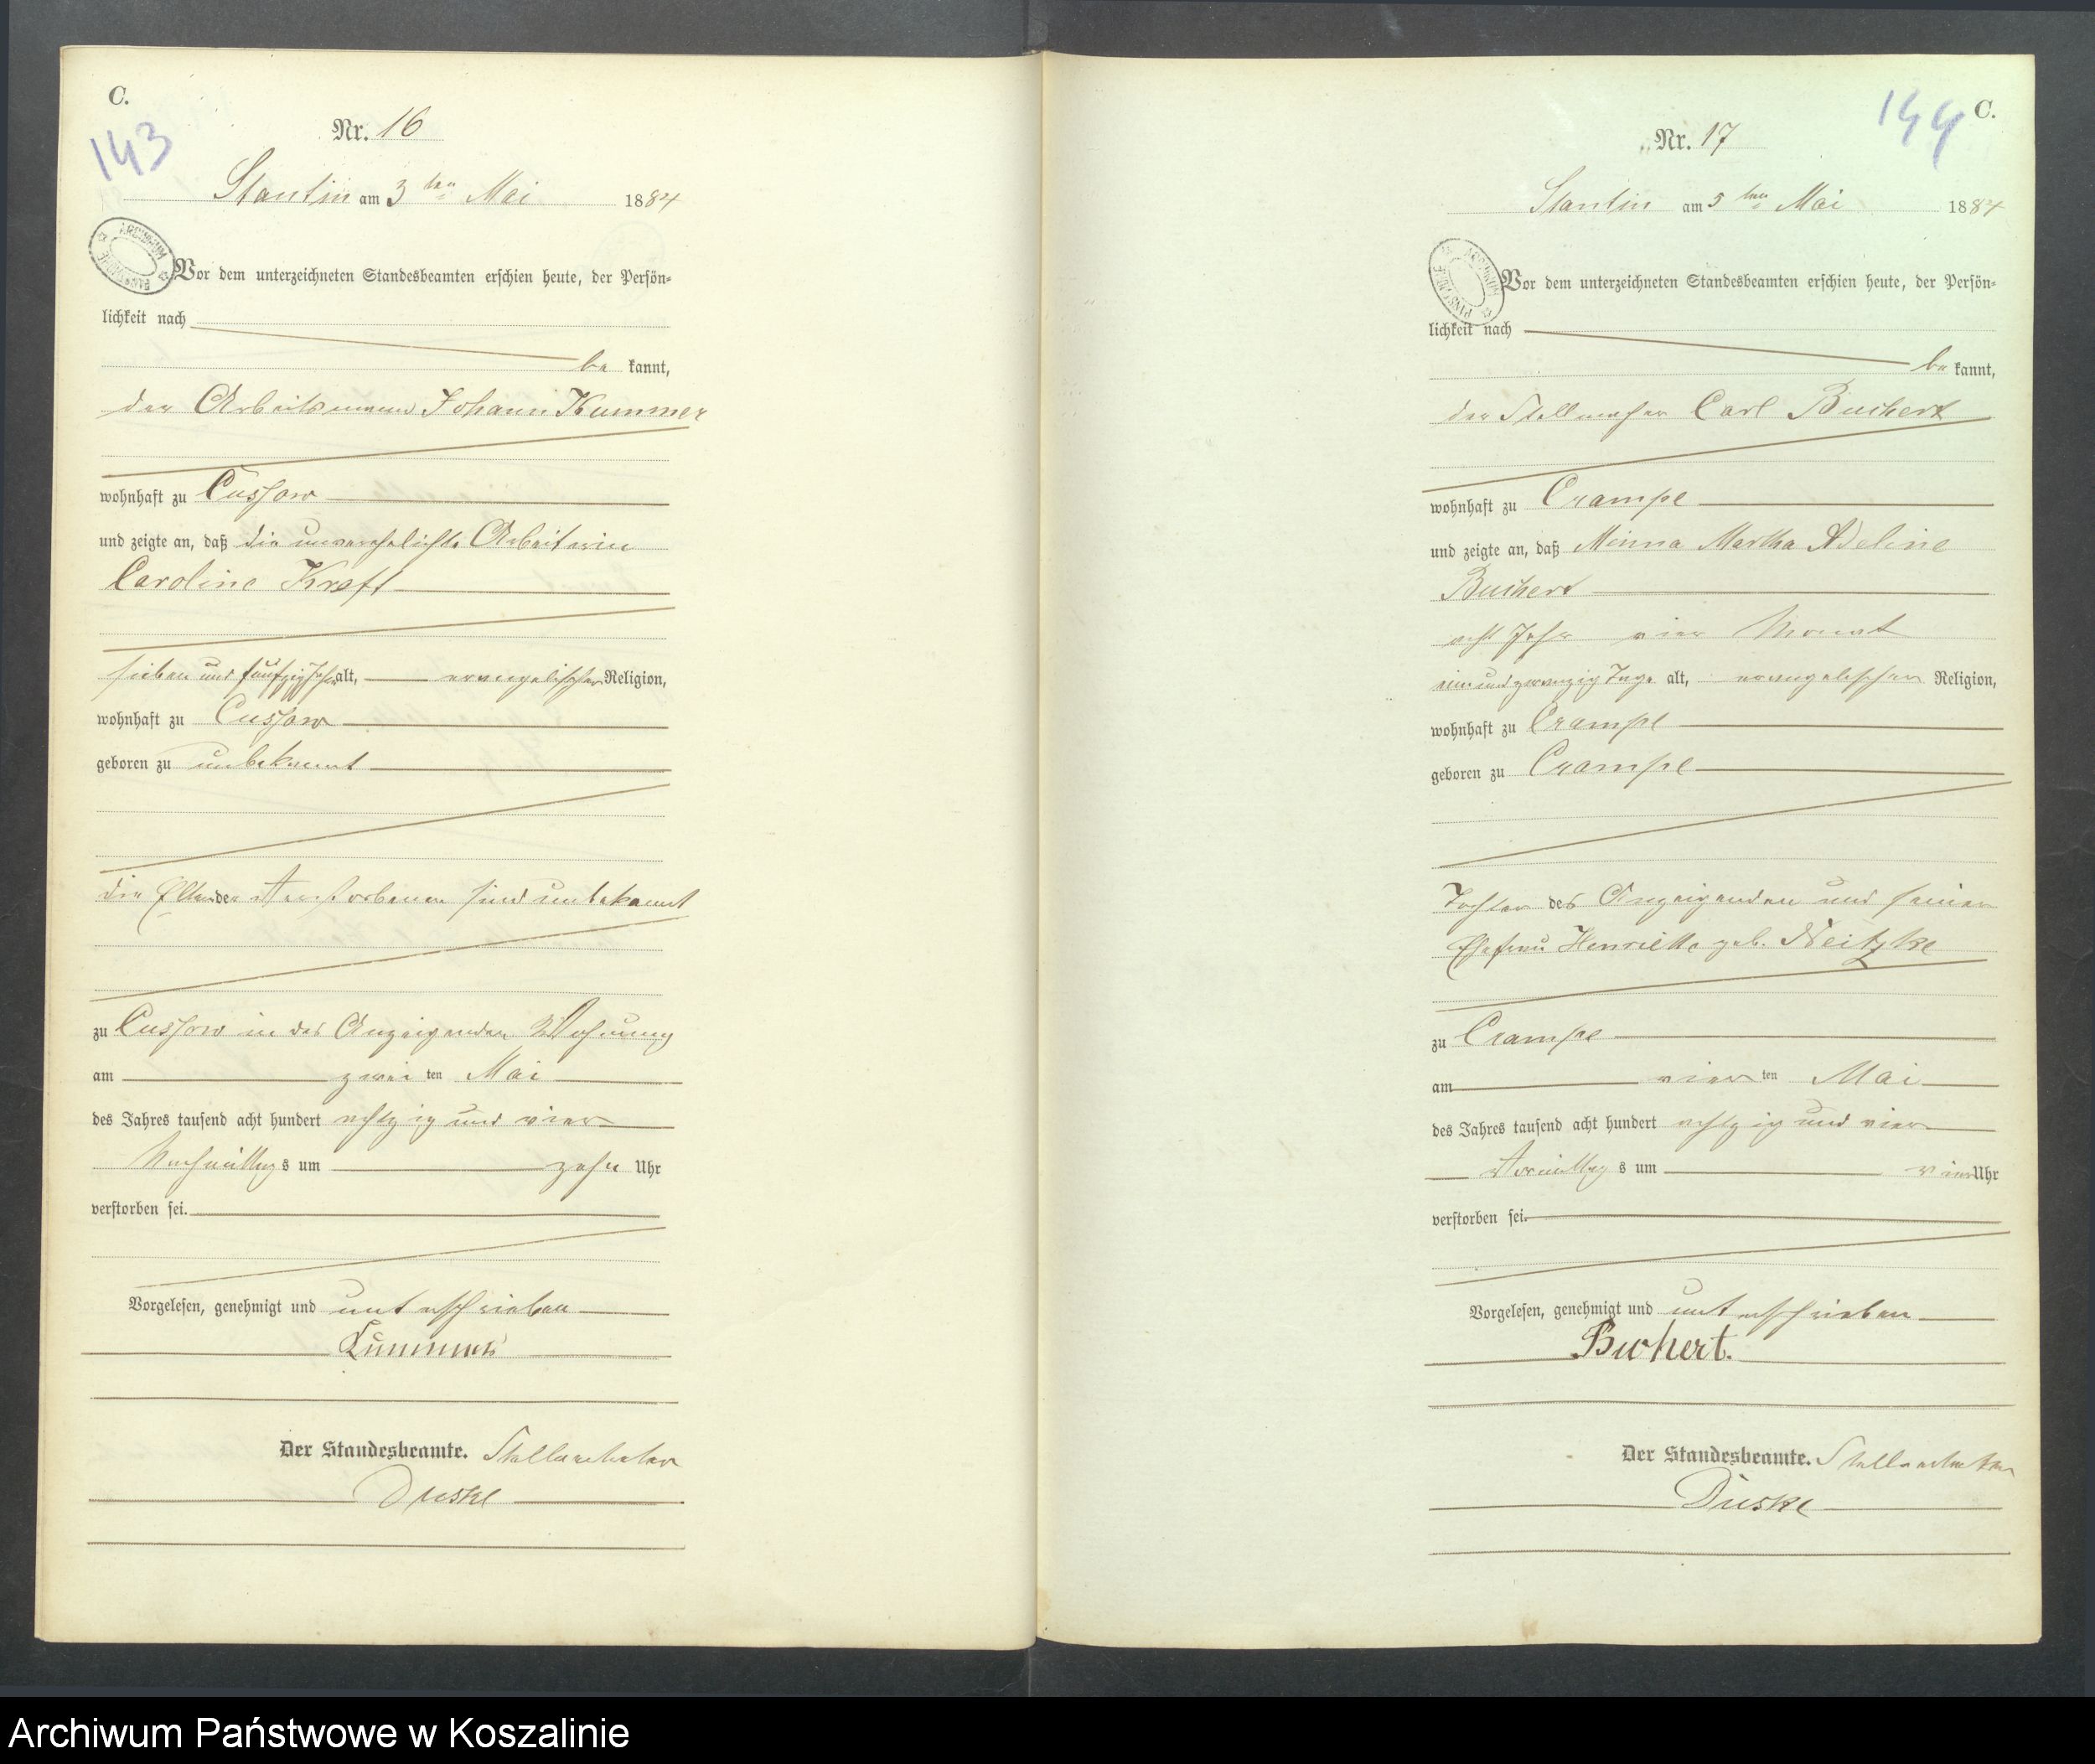 C.
143
Nr. 16
Stantin am 3ten Mai 1884
Vor dem unterzeichneten Standesbeamten erschien heute, der Persön-
lichkeit nach
be kannt,
der Arbeitsmann Johann Kummer
wohnhaft zu Cussow
und zeigte an, daß die unverehelichte Arbeiterin
Caroline Kreft
sieben und fünfzig Jahr alt, evangelischer Religion,
wohnhaft zu Cussow
geboren zu unbekannt
die Eltern der Verstorbenen sind unbekannt
zu Cussow in des Anzeigenden Wohnung
am zwei ten Mai
des Jahres tausend acht hundert achtzig und vier
Nachmittags um zehn Uhr
verstorben sei.
Vorgelesen, genehmigt und unterschrieben
Kummer
Der Standesbeamte. Stellvertreter
Duske
C.
144
Nr. 17
Stantin am 5ten Mai 1884
Vor dem unterzeichneten Standesbeamten erschien heute, der Persön-
lichkeit nach
be kannt,
der Stellmacher Carl Buchert
wohnhaft zu Crampe
und zeigte an, daß Minna Martha Adeline
Buchert
acht Jahr vier Monat
ein und zwanzig Tage alt, evangelischer Religion,
wohnhaft zu Crampe
geboren zu Crampe
Tochter des Anzeigenden und seiner
Ehefrau Henriette geb. Neitzke
zu Crampe
am vier ten Mai
des Jahres tausend acht hundert achtzig und vier
Vormittags um vier Uhr
verstorben sei.
Vorgelesen, genehmigt und unterschrieben
Buchert.
Der Standesbeamte. Stellvertreter
Duske
Archiwum Państwowe w Koszalinie